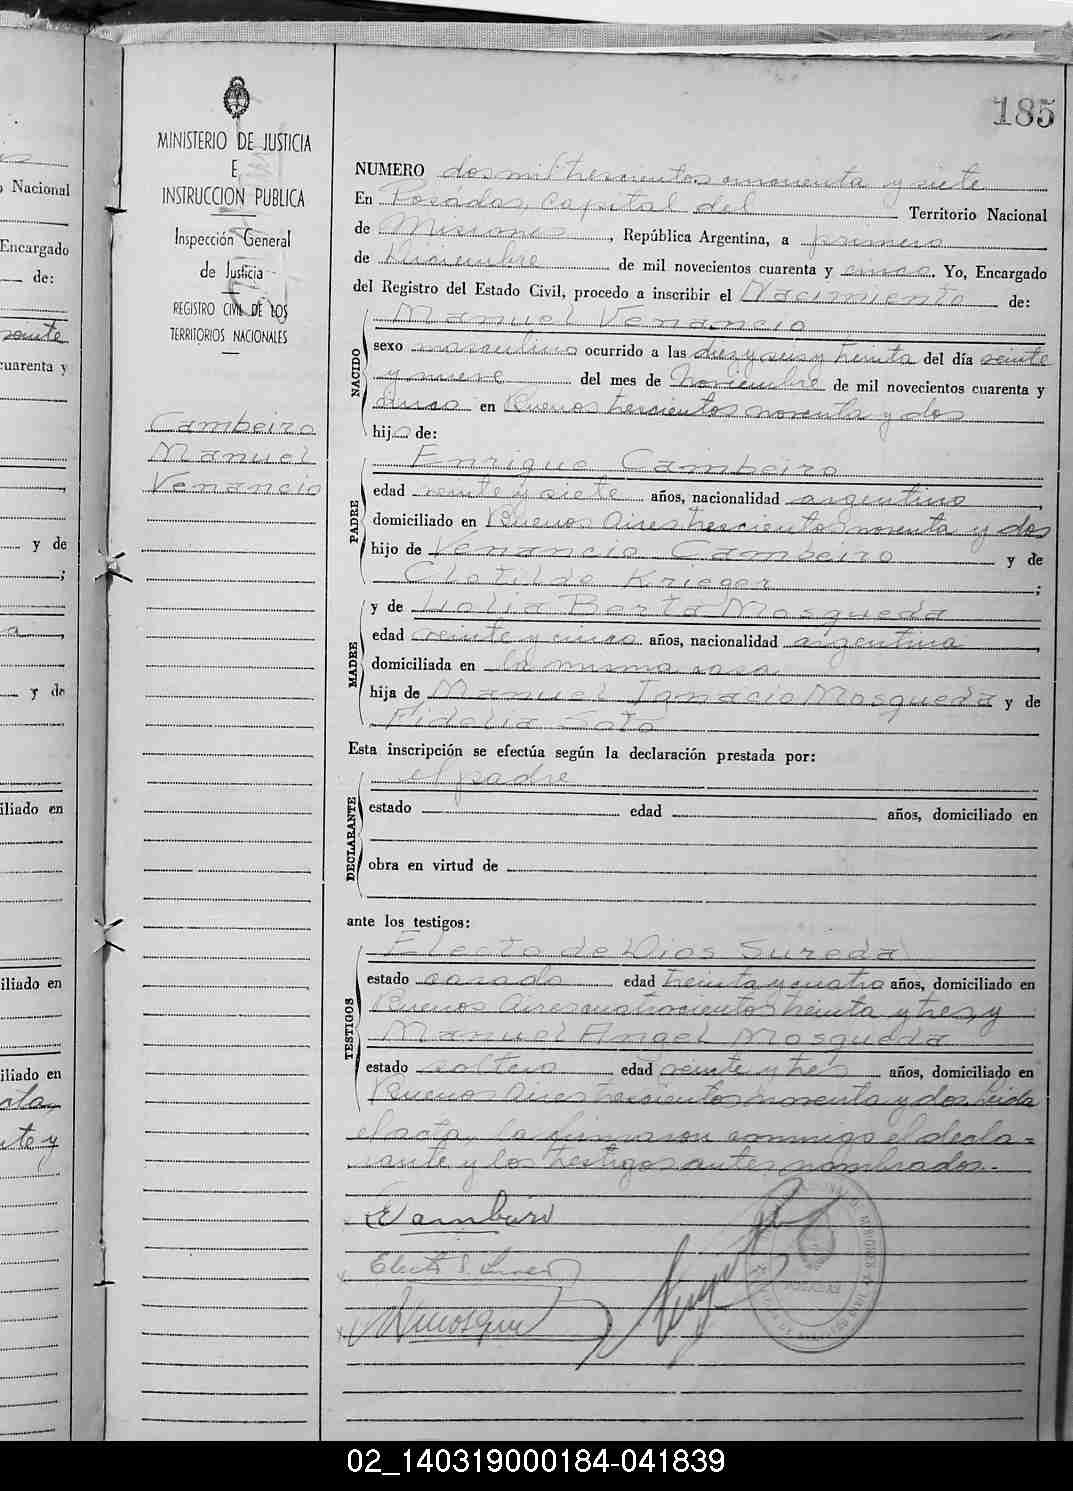 185
MINISTERIO DE JUSTICIA
E
INSTRUCCION PUBLICA
Inspección General
de Justicia
REGISTRO CIVIL DE LOS
TERRITORIOS NACIONALES
Cambeiro
Manuel
Venancio
NUMERO dos mil trescientos cuarenta y siete
En Posadas, Capital del Territorio Nacional
de Misiones, República Argentina, a primero
de Diciembre de mil novecientos cuarenta y cinco. Yo, Encargado
del Registro del Estado Civil, procedo a inscribir el Nacimiento de:
NACIDO
Manuel Venancio
sexo masculino ocurrido a las diez y seis y treinta del día veinte
y nueve del mes de Noviembre de mil novecientos cuarenta y
cinco en Buenos trescientos noventa y dos
hijo de:
PADRE
Enrique Cambeiro
edad veinte y siete años, nacionalidad argentino,
domiciliado en Buenos Aires trescientos noventa y dos
hijo de Venancio Cambeiro y de
Clotilde Krieger;
MADRE
y de Lolia Berta Mosqueda
edad veinte y cinco años, nacionalidad argentina,
domiciliada en la misma casa
hija de Manuel Ignacio Mosqueda y de
Fidelia Soto
Esta inscripción se efectúa según la declaración prestada por:
DECLARANTE
el padre
estado edad años, domiciliado en
obra en virtud de
ante los testigos:
TESTIGOS
Electo de Dios Sureda
estado casado edad treinta y cuatro años, domiciliado en
Buenos Aires cuatrocientos treinta y tres, y
Manuel Angel Mosqueda
estado soltero edad veinte y tres años, domiciliado en
Buenos Aires trescientos noventa y dos. Leida
el acta, la firmaron conmigo el decla=
rante y los testigos antes nombrados.-
ECambeiro
Electo S.
Nacional
Encargado
de:
veinte
cuarenta y
y de
;
y de
iliado en
iliado en
iliado en
te y
02_140319000184-041839